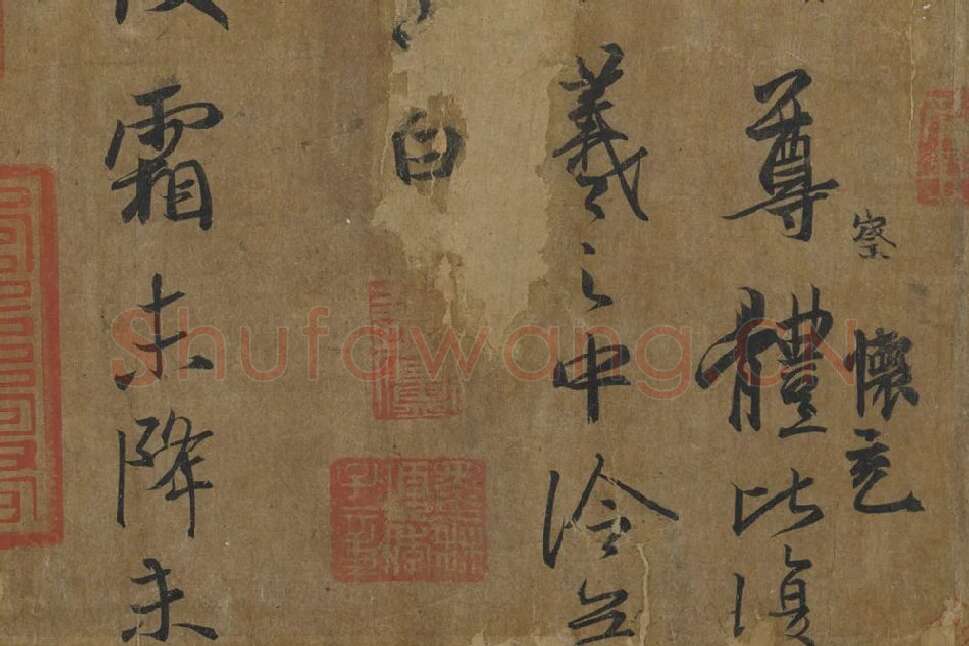 察
懷充
尊體比復
羲之中冷無
白
霜未降未
Shufawang.CN